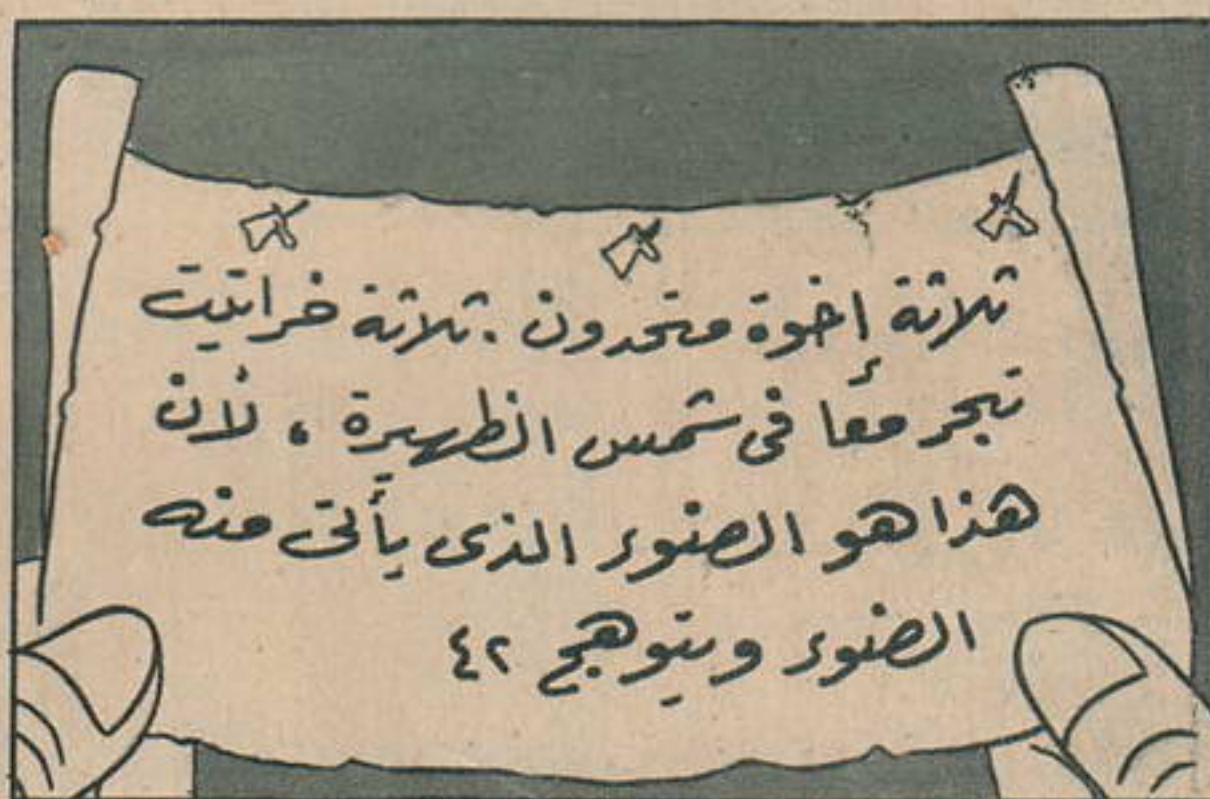 ثلاثة إخوة متحدون . ثلاثة خراتيت
تبحر معًا فى شمس الظهيرة ، لأن
هذا هو الضوء الذى يأتى منه
الضوء ويتوهج ٤٢